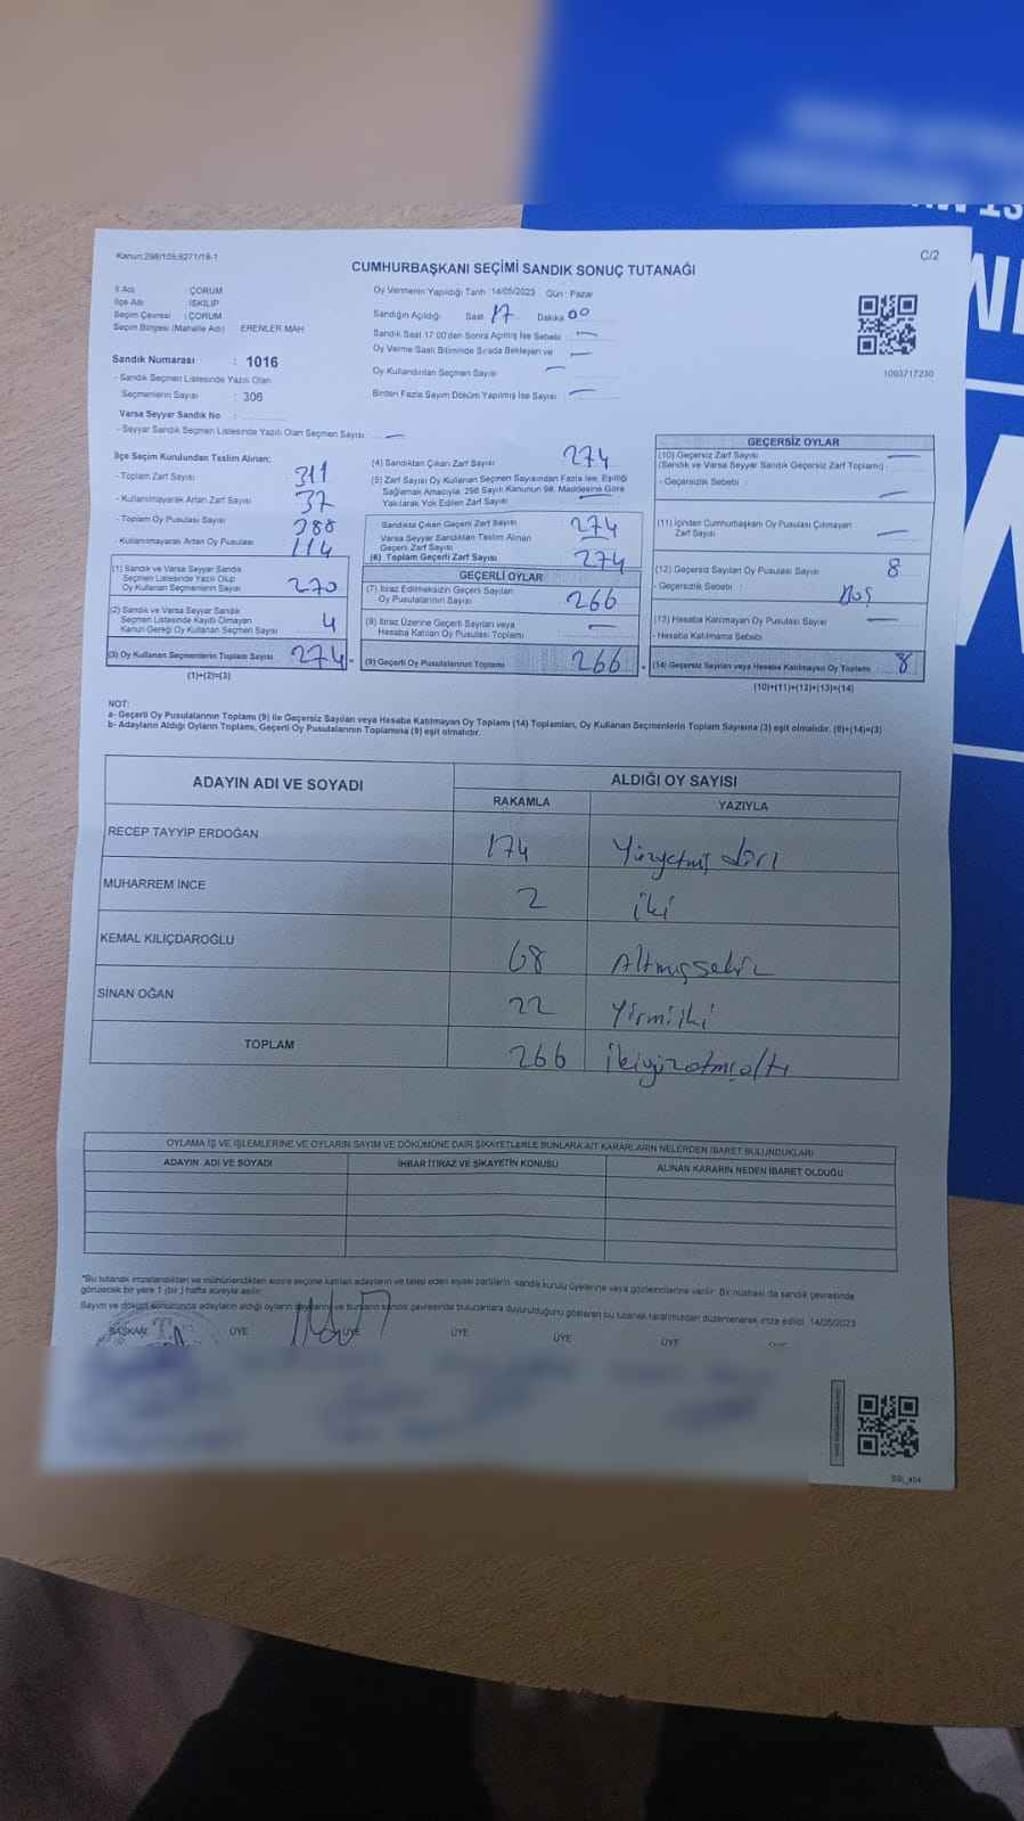 Kanun:298/105,6271/19-1
C/2
CUMHURBAŞKANI SEÇİMİ SANDIK SONUÇ TUTANAĞI
İl Adı : ÇORUM
İlçe Adı : İSKİLİP
Seçim Çevresi : ÇORUM
Seçim Bölgesi (Mahalle Adı) ERENLER MAH
Sandık Numarası : 1016
- Sandık Seçmen Listesinde Yazılı Olan
Seçmenlerin Sayısı : 306
Varsa Seyyar Sandık No :
- Seyyar Sandık Seçmen Listesinde Yazılı Olan Seçmen Sayısı —
Oy Vermenin Yapıldığı Tarih :14/05/2023 Gün : Pazar
Sandığın Açıldığı: Saat 17 Dakika 00
Sandık Saat 17:00'den Sonra Açılmış İse Sebebi —
Oy Verme Saati Bitiminde Sırada Bekleyen ve —
Oy Kullandırılan Seçmen Sayısı —
Birden Fazla Sayım Döküm Yapılmış İse Sayısı —
1003717230
İlçe Seçim Kurulundan Teslim Alınan;
- Toplam Zarf Sayısı 311
- Kullanılmayarak Artan Zarf Sayısı 37
- Toplam Oy Pusulası Sayısı 388
- Kullanılmayarak Artan Oy Pusulası 114
(1) Sandık ve Varsa Seyyar Sandık
Seçmen Listesinde Yazılı Olup
Oy Kullanan Seçmenlerin Sayısı 270
(2) Sandık ve Varsa Seyyar Sandık
Seçmen Listesinde Kayıtlı Olmayan
Kanun Gereği Oy Kullanan Seçmen Sayısı 4
(3) Oy Kullanan Seçmenlerin Toplam Sayısı 274
(1)+(2)=(3)
(4) Sandıktan Çıkan Zarf Sayısı 274
(5) Zarf Sayısı Oy Kullanan Seçmen Sayısından Fazla İse, Eşitliği
Sağlamak Amacıyla, 298 Sayılı Kanunun 98. Maddesine Göre
Yakılarak Yok Edilen Zarf Sayısı —
Sandıkta Çıkan Geçerli Zarf Sayısı 274
Varsa Seyyar Sandıktan Teslim Alınan
Geçerli Zarf Sayısı —
(6) Toplam Geçerli Zarf Sayısı 274
GEÇERLİ OYLAR
(7) İtiraz Edilmeksizin Geçerli Sayılan
Oy Pusulalarının Sayısı 266
(8) İtiraz Üzerine Geçerli Sayılan veya
Hesaba Katılan Oy Pusulası Toplamı —
(9) Geçerli Oy Pusulalarının Toplamı 266
GEÇERSİZ OYLAR
(10) Geçersiz Zarf Sayısı —
(Sandık ve Varsa Seyyar Sandık Geçersiz Zarf Toplamı)
- Geçersizlik Sebebi : —
(11) İçinden Cumhurbaşkanı Oy Pusulası Çıkmayan
Zarf Sayısı —
(12) Geçersiz Sayılan Oy Pusulası Sayısı 8
- Geçersizlik Sebebi :
(13) Hesaba Katılmayan Oy Pusulası Sayısı —
- Hesaba Katılmama Sebebi
(14) Geçersiz Sayılan veya Hesaba Katılmayan Oy Toplamı 8
(10)+(11)+(12)+(13)=(14)
NOT:
a- Geçerli Oy Pusulalarının Toplamı (9) ile Geçersiz Sayılan veya Hesaba Katılmayan Oy Toplamı (14) Toplamları, Oy Kullanan Seçmenlerin Toplam Sayısına (3) eşit olmalıdır. (9)+(14)=(3)
b- Adayların Aldığı Oyların Toplamı, Geçerli Oy Pusulalarının Toplamına (9) eşit olmalıdır.
ADAYIN ADI VE SOYADI
ALDIĞI OY SAYISI
RAKAMLA YAZIYLA
RECEP TAYYİP ERDOĞAN 174 Yüzyetmiş dört
MUHARREM İNCE 2 iki
KEMAL KILIÇDAROĞLU 68 Altmışsekiz
SİNAN OĞAN 22 Yirmiiki
TOPLAM 266 ikiyüzatmışaltı
OYLAMA İŞ VE İŞLEMLERİNE VE OYLARIN SAYIM VE DÖKÜMÜNE DAİR ŞİKAYETLERLE BUNLARA AİT KARARLARIN NELERDEN İBARET BULUNDUKLARI
ADAYIN ADI VE SOYADI İHBAR İTİRAZ VE ŞİKAYETİN KONUSU ALINAN KARARIN NEDEN İBARET OLDUĞU
*Bu tutanak imzalandıktan ve mühürlendikten sonra seçime katılan adayların ve talep eden siyasi partilerin sandık kurulu üyelerine veya gözlemcilerine verilir. Bir nüshası da sandık çevresinde
görülecek bir yere 1 (bir) hafta süreyle asılır.
Sayım ve döküm sonucunda adayların aldığı oyların sayılarını ve bunların sandık çevresinde bulunanlara duyurulduğunu gösteren bu tutanak tarafımızdan düzenlenerek imza edildi. 14/05/2023
BAŞKAN ÜYE ÜYE ÜYE ÜYE ÜYE